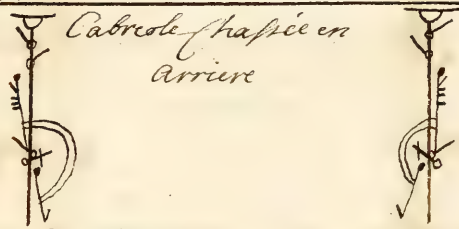 Cabreole Chassée en
Arriere